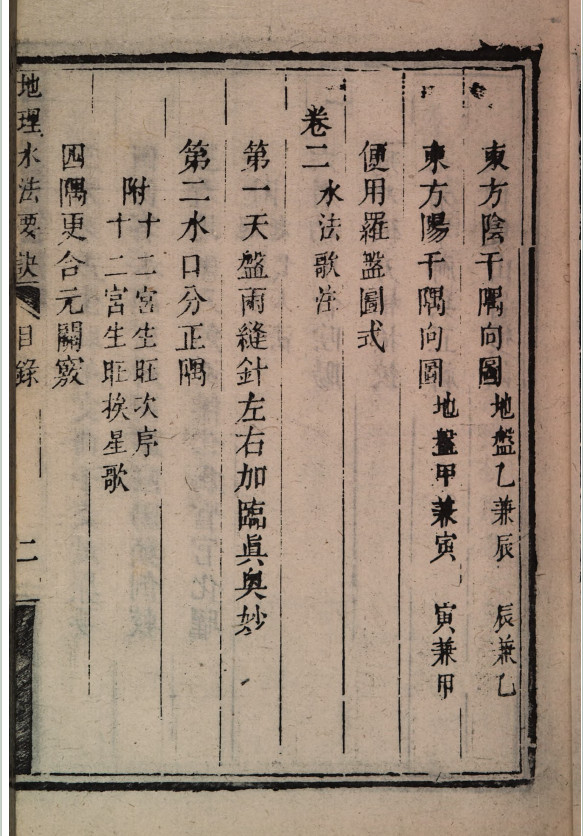 東方陰干隅向圖 地盤乙兼辰 辰兼乙
東方陽干隅向圖 地盤甲兼寅 寅兼甲
便用羅盤圖式
卷二 水法歌注
第一天盤兩縫針左右加臨眞奥妙
第二水口分正隅
附十二宮生旺次序
十二宮生旺挨星歌
四隅更合元關竅
地理水法要訣 目錄 二